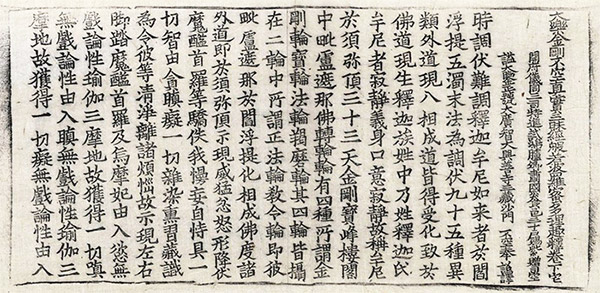 大樂金剛不空真實三昧耶經般若波羅蜜多理趣釋卷下
開府儀同三司特進試鴻臚卿肅國公食邑三千户賜紫贈司空
謚大鑒正号大廣智大興善寺三藏沙門 不空奉 詔譯
時調伏難調釋迦牟尼如來者於閻
浮提五濁末法為調伏九十五種異
類外道現八相成道皆得受化致於
佛道現生釋迦族姓中乃姓釋迦氏
牟尼者寂静義身口意寂静故稱牟尼
於須弥頂三十三天金剛寶峰樓閣
中毗盧遮那佛轉輪輪有四種所謂金
剛輪寶輪法輪羯磨輪其四輪皆攝
在二輪中所謂正法輪教令輪即彼
毗盧遮那於閻浮提化相成佛度諸
外道即於須弥頂示現威猛忿怒形降伏
魔醯首羅等驕佚我慢妄自恃具一
切智由貪瞋癡一切雜染熏習藏識
為令彼等清淨離諸煩惱故示現左右
脚踏魔醯首羅及烏摩妃由入慾無
戲論性瑜伽三摩地故獲得一切瞋
無戲論性由入瞋無戲論性瑜伽三
摩地故獲得一切癡無戲論性由入